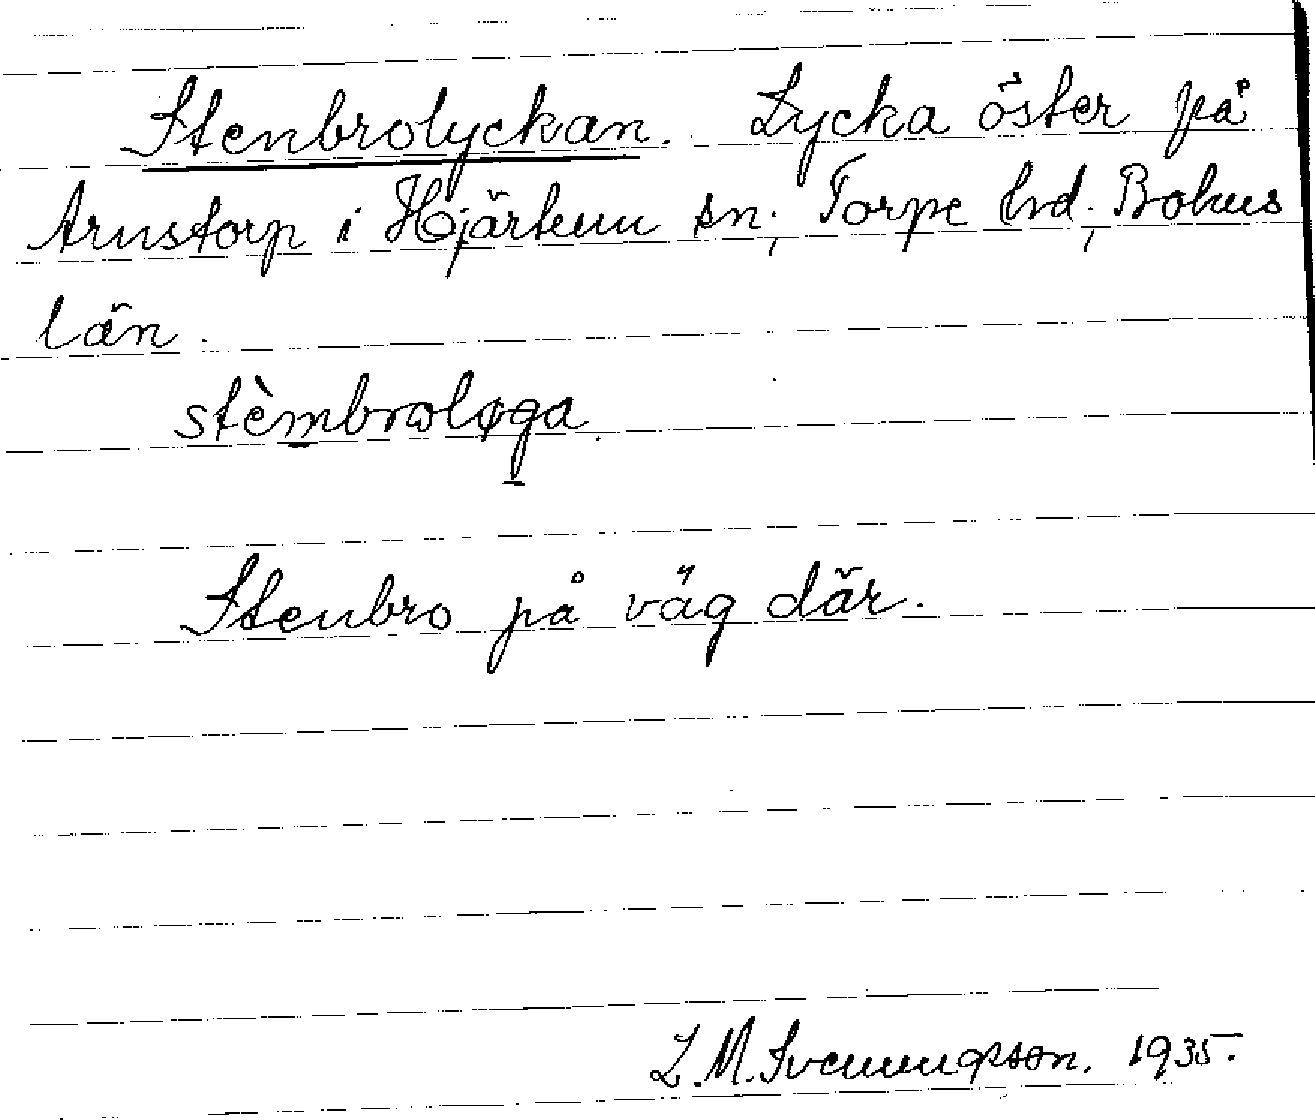 Stenbrolyckan. Lycka öster på
Arnstorp i Hjärtum sn; Torpe hd; Bohus
län.
stèmbroløga.
Stenbro på väg där.
L.M. Svenungsson. 1935.